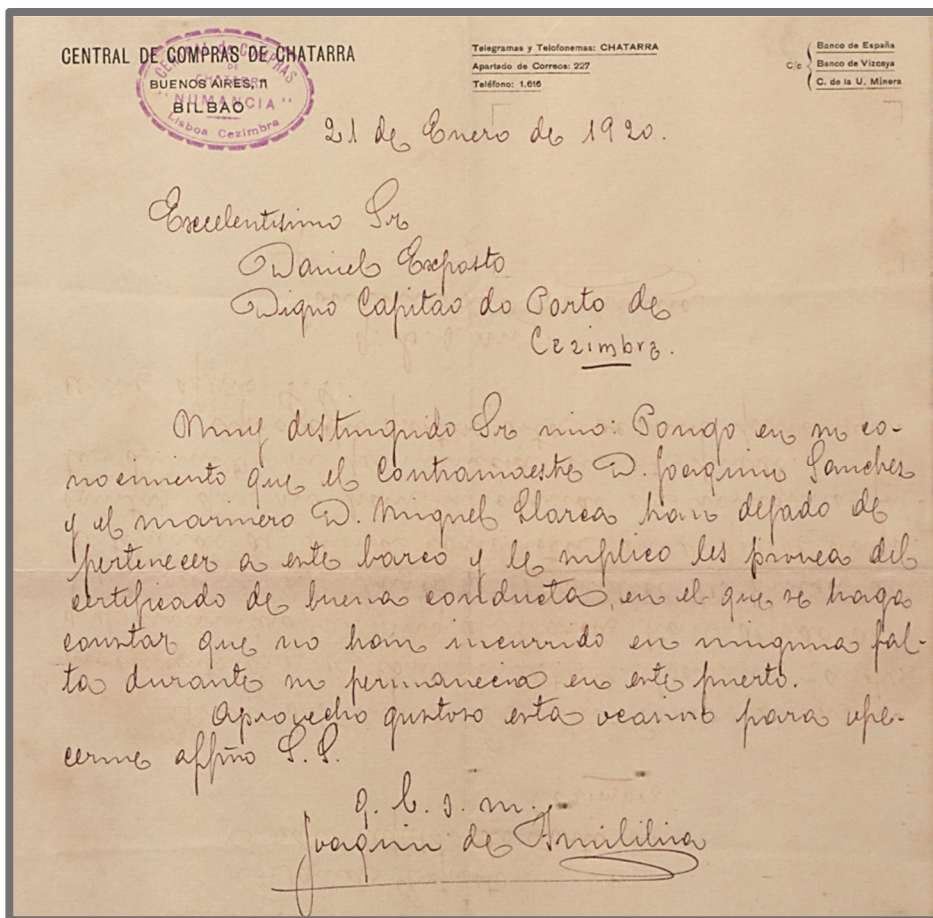 CENTRAL DE COMPRAS DE CHATARRA
BUENOS AIRES, 11
BILBAO
CENTRAL DE COMPRAS
DE
CHATARRA
"NUMANCIA"
Lisboa Cezimbra
Telegramas y Telofonemas: CHATARRA
Apartado de Correos: 227
Teléfono: 1.616
C/c
Banco de España
Banco de Vizcaya
C. de la U. Minera
21 de Enero de 1920.
Excelentisimo Sr
Daniel Exposto
Digno Capitao do Porto de
Cezimbra.
Muy distinguido Sr mio: Pongo en su co-
nocimiento que el Contramaestre D. Joaquin Sanchez
y el marinero D. Miguel Llarca han dejado de
pertenecer a este barco y le suplico les provea del
certificado de buena conducta, en el que se haga
constar que no han incurrido en ninguna fal-
ta durante su permanecia en este puerto.
Aprovecho gustoso esta ocasion para ofre-
cerme affmo S.S.
q. b. s. m.
Joaquin de Amilibia